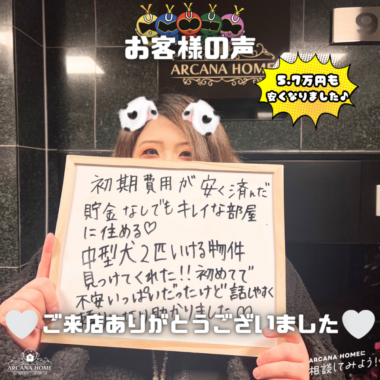 お客様の声
9
ARCANA HOME
5.7万円も
安くなりました♪
初期費用が安く済んだ
貯金なしでもキレイな部屋
に住める♡
中型犬2匹いける物件
見つけてくれた!!初めてで
不安いっぱいだったけど話しやすく
助かりました
ご来店ありがとうございました
ARCANA HOME
ARCANA HOMEに
相談してみよう!